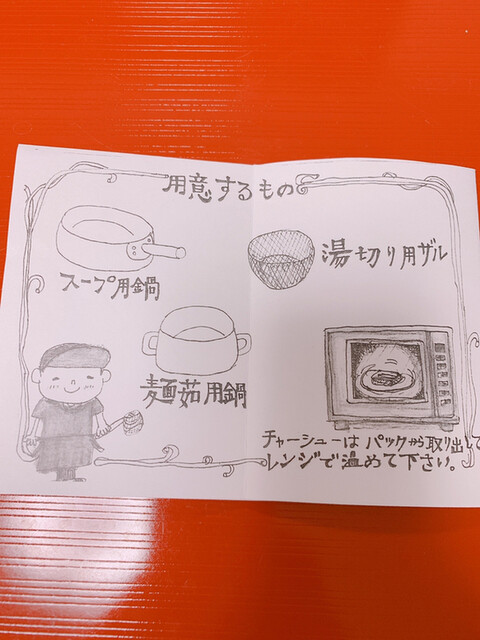 用意するもの
スープ用鍋
湯切り用ザル
麺茹用鍋
チャーシューはパックから取り出して
レンジで温めて下さい。